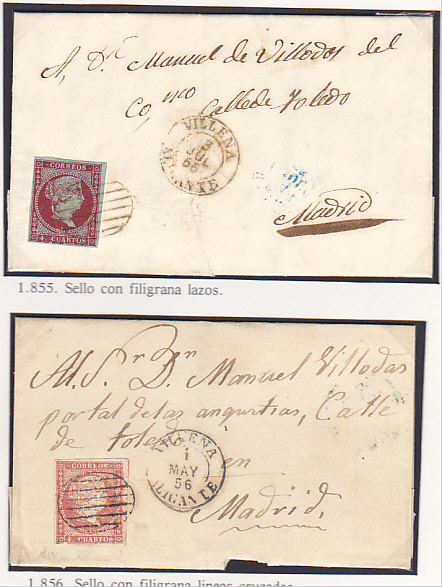 A, Dn. Manuel de Villodos del
Co, rreo Calle de Toledo
VILLENA
3
JUL
ALICANTE
Madrid
CORREOS
4 CUARTOS
1.855. Sello con filigrana lazos.
Al Sr. Dn. Manuel Villodas
portal de las angustias, Calle
de toledo en
Madrid
VILLENA
1
MAY
56
ALICANTE
CORREOS
4 CUARTOS
1.856. Sello con filigrana lineas cruzadas